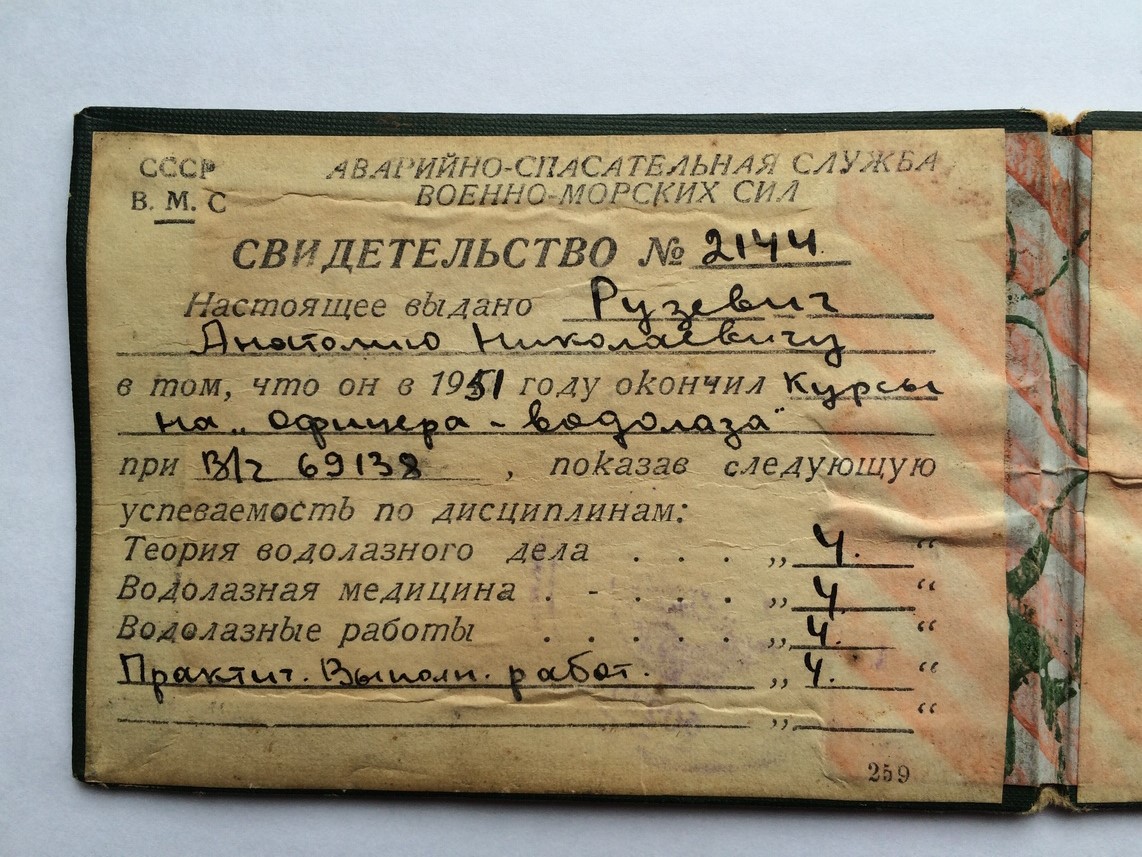 СССР
В. М. С
АВАРИЙНО-СПАСАТЕЛЬНАЯ СЛУЖБА
ВОЕННО-МОРСКИХ СИЛ
СВИДЕТЕЛЬСТВО № 2144
Настоящее выдано Рузевич
Анатолию Николаевичу
в том, что он в 1951 году окончил Курсы
на „Офицера - водолаза"
при В/ч 69138 , показав следующую
успеваемость по дисциплинам:
Теория водолазного дела . . . „ 4. “
Водолазная медицина . - . . . „ 4. “
Водолазные работы . . . . . „ 4. “
Практич. Выполн. работ. „ 4. “
„ “
259